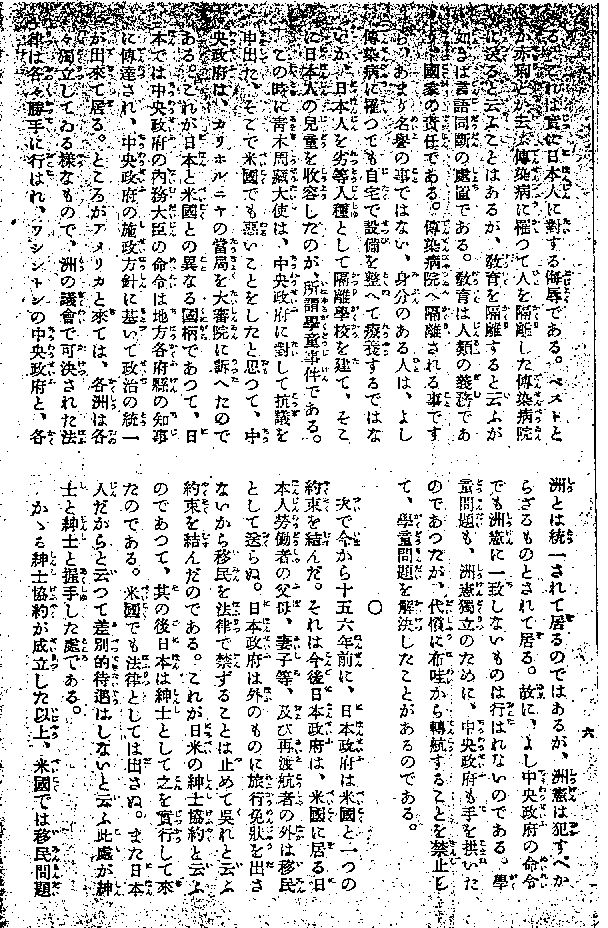 る。これは實に日本人に對する侮辱である。ペストと
か赤痢とか云ふ傳染病に罹つて人を隔離した傳染病院
に送ると云ふことはあるが、敎育を隔離すると云ふが
如きは言語同斷の處置である。敎育は人類の義務であ
り、國家の責任である。傳染病院へ隔離される事です
ら、あまり名譽の事ではない、身分のある人は、よし
傳染病に罹つても自宅で設備を整へて療養するではな
いか。日本人を劣等人種として隔離學校を建て、そこ
に日本人の兒童を收容したのが、所謂學童事件である。
この時に靑木周藏大使は、中央政府に對して抗議を
申出た。そこで米國でも惡いことをしたと思つて、中
央政府は、カリホルニヤの當局を大審院に訴へたので
ある。これが日本と米國との異なる國柄であつて、日
本では中央政府の內務大臣の命令は地方各府縣の知事
に傳達され、中央政府の施政方針に基いて政治の統一
が出來て居る。ところがアメリカと來ては、各洲は各
々獨立してゐる樣なもので、洲の議會で可決された法
律は各々勝手に行はれ、ワシントンの中央政府と、各
洲とは統一されて居るのではあるが、洲憲は犯すべか
らざるものとされて居る。故に、よし中央政府の命令
でも洲憲に一致しないものは行はれないのである。學
童問題も、洲憲獨立のために、中央政府も手を拱いた
のであつたが、代償に布哇から轉航することを禁止し
て、學童問題を解決したことがあるのである。
○
次で今から十五六年前に、日本政府は米國と一つの
約束を結んだ。それは今後日本政府は、米國に居る日
本人勞働者の父母、妻子等、及び再渡航者の外は移民
として送らぬ。日本政府は外のものに旅行免狀を出さ
ないから移民を法律で禁ずることは止めて吳れと云ふ
約束を結んだのである。これが日米の紳士協約と云ふ
のであつて、其の後日本は紳士として之を實行して來
たのである。米國でも法律としては出さぬ。また日本
人だからと云つて差別的待遇はしないと云ふ此處が紳
士と紳士と握手した處である。
かゝる紳士協約が成立した以上、米國では移民問題
六